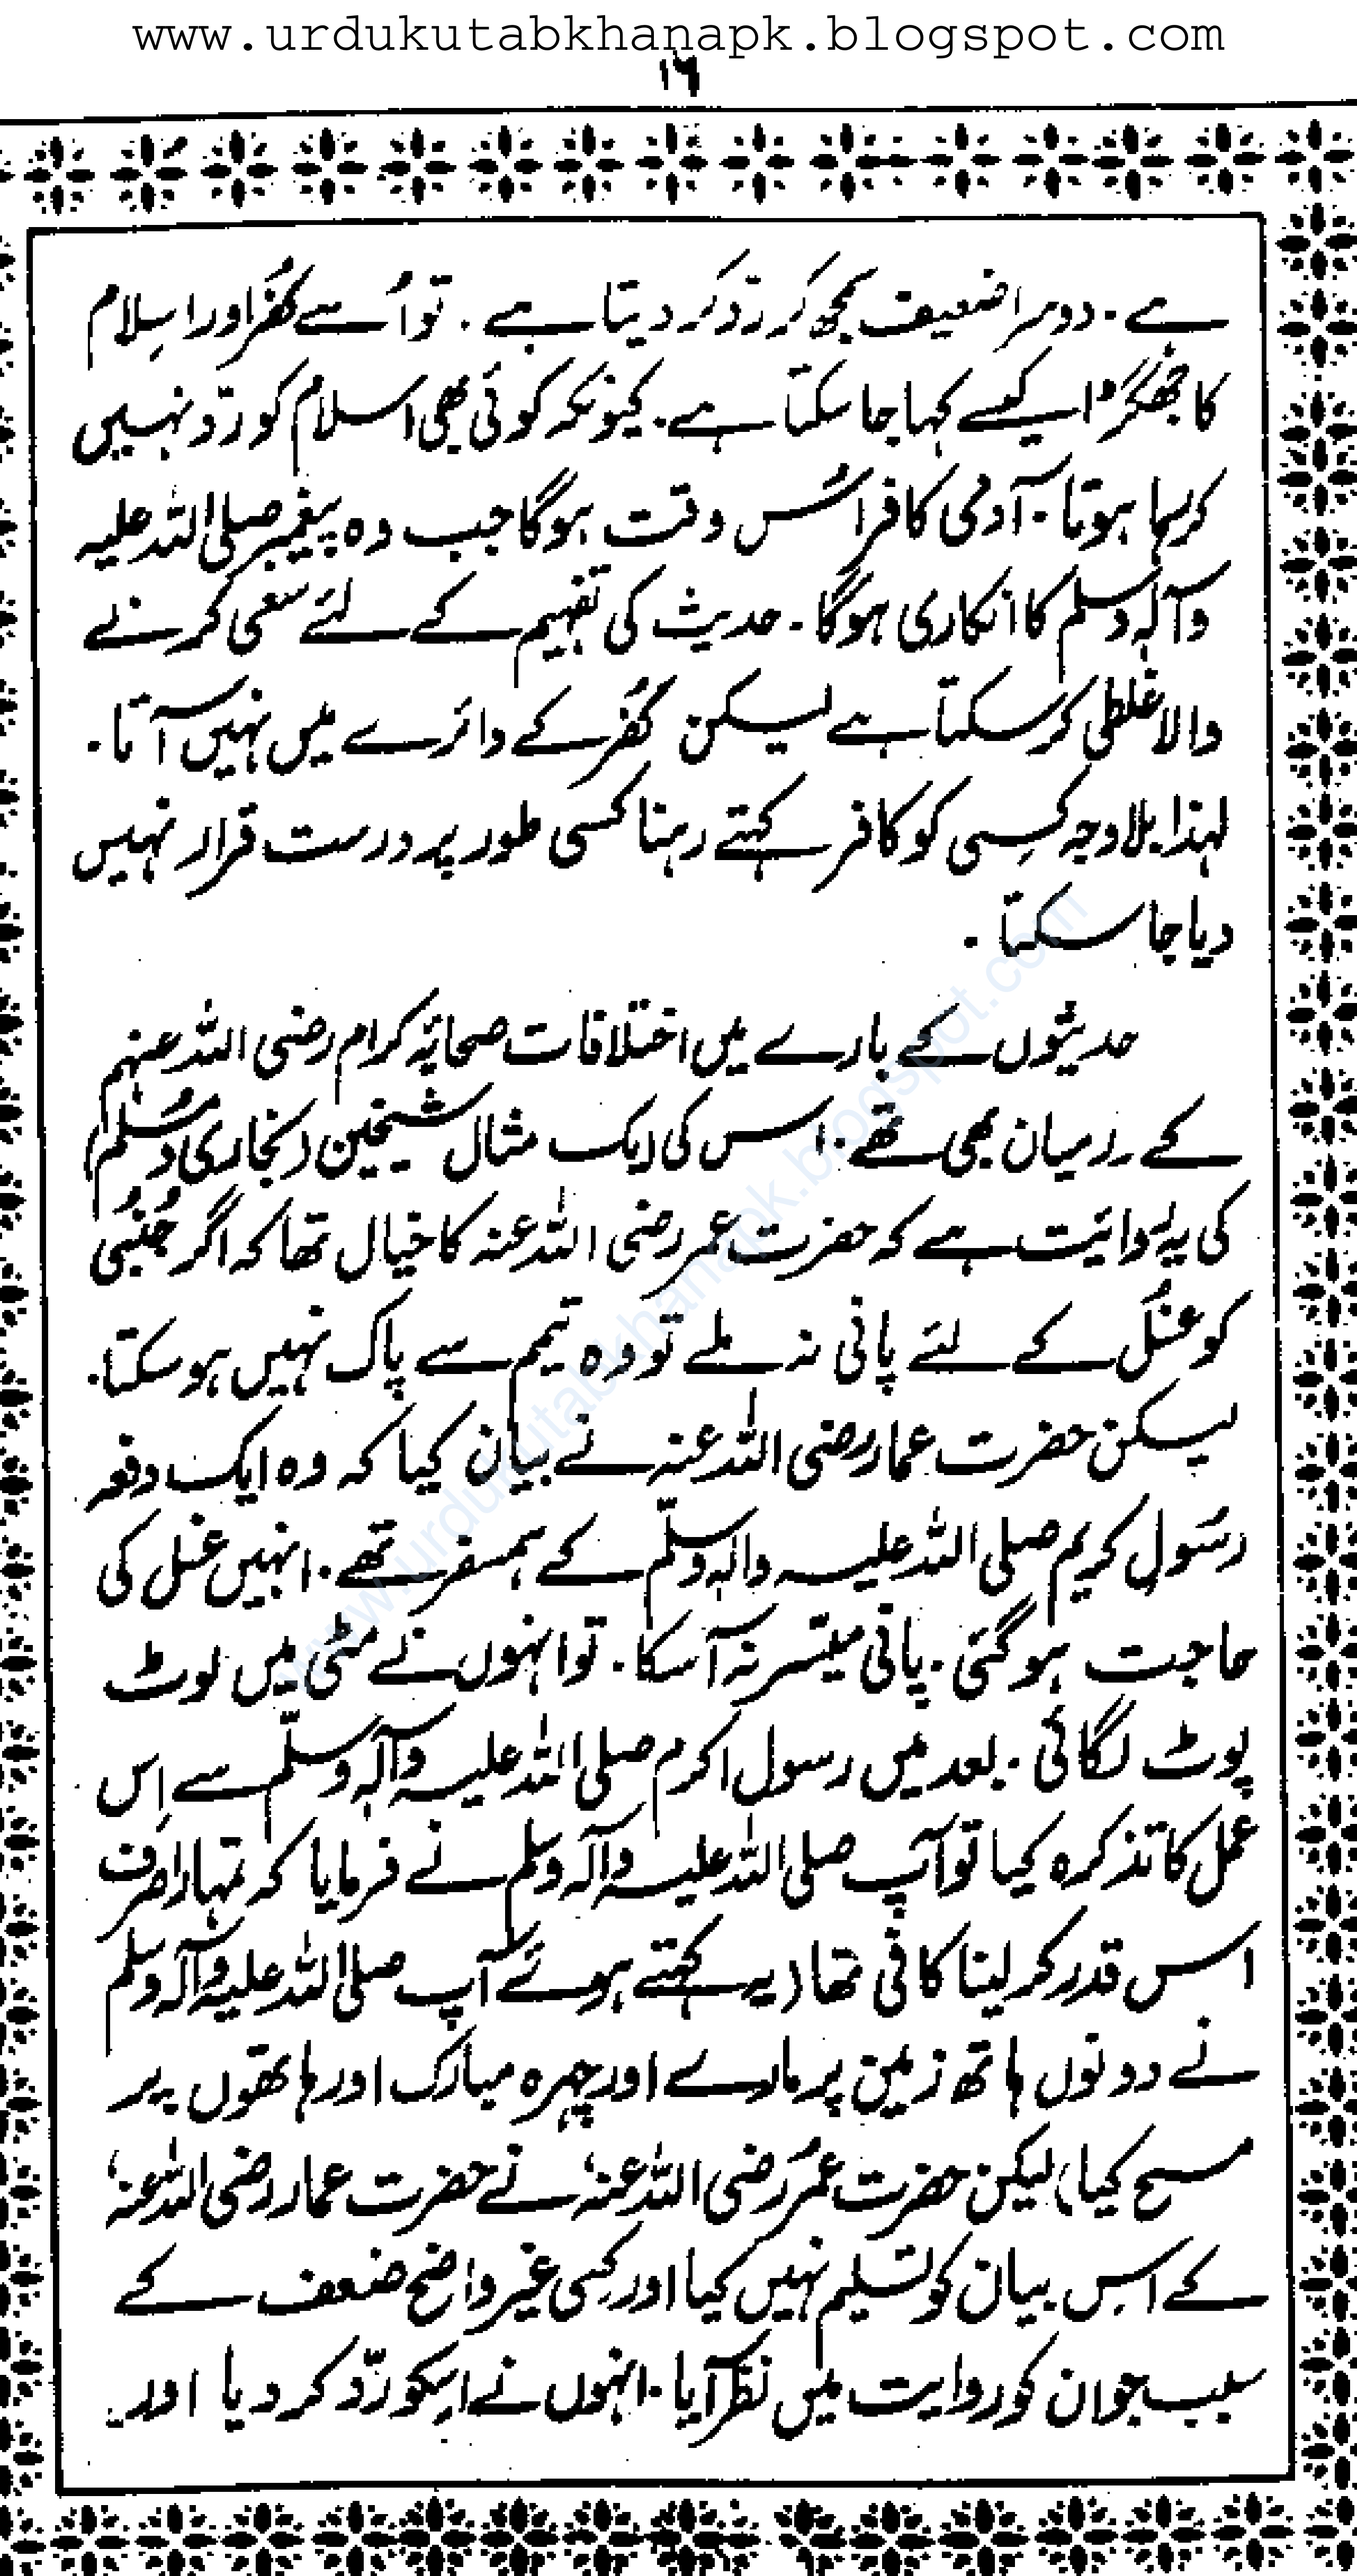 www.urdukutabkhanapk.blogspot.com
۱۶
ہے۔ دوسرا ضعیف سمجھ کر ردّ کر دیتا ہے۔ تو اُسے کُفر اور اسِلام
کا جھگڑا کیسے کہا جا سکتا ہے۔ کیونکہ کوئی بھی اسلام کو ردّ نہیں
کر رہا ہوتا۔ آدمی کافر اُس وقت ہوگا جب وہ پیغمبر صلی اللہ علیہ
وآلہٖ وسلم کا انکاری ہوگا۔ حدیث کی تفہیم کے لئے سعی کرنے
والا غلطی کر سکتا ہے لیکن کُفر کے دائرے میں نہیں آتا۔
لہذا بلاوجہ کِسی کو کافر کہتے رہنا کسی طور پر درست قرار نہیں
دیا جا سکتا۔
حدیثوں کے بارے میں اختلافات صحابہٗ کرام رضی اللہ عنہم
کے درمیان بھی تھے۔ اس کی ایک مثال شیخین (بخاری و مُسلم)
کی یہ روائیت ہے کہ حضرت عمر رضی اللہ عنہ کا خیال تھا کہ اگر جُنبُی
کو غسُل کے لئے پانی نہ ملے تو وہ تیمم سے پاک نہیں ہو سکتا۔
لیکن حضرت عمار رضی اللہ عنہ نے بیان کیا کہ وہ ایک دفعہ
رسَول کریم صلی اللہ علیہ والہٖ وسلّم کے ہمسفر تھے۔ انہیں غسل کی
حاجت ہو گئی۔ پانی میّسر نہ آسکا۔ تو انہوں نے مٹی میں لوٹ
پوٹ لگائی۔ بعد میں رسول اکرم صلی اللہ علیہ وآلہٖ وسلّم سے اِس
عمل کا تذکرہ کیا تو آپ صلی اللہ علیہ وآلہ وسلم نے فرمایا کہ تمہارا صرف
اس قدر کر لینا کافی تھا (یہ کہتے ہوئے آپ صلی اللہ علیہ وآلہ وسلم
نے دونوں ہاتھ زمین پر مارے اور چہرہ مبارک اور ہاتھوں پر
مسح کیا) لیکن حضرت عمرُ رضی اللہ عنہٗ نے حضرت عمار رضی اللہ عنہٗ
کے اسِ بیان کو تسلیم نہیں کیا اور کِسی غیر واضح ضعف کے
سبب جو ان کو روایت میں نظر آیا۔ انہوں نے اسِکو ردّ کر دیا اور
www.urdukutabkhanapk.blogspot.com